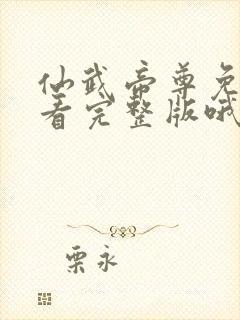 仙武帝尊免
看完整版哦
栗永